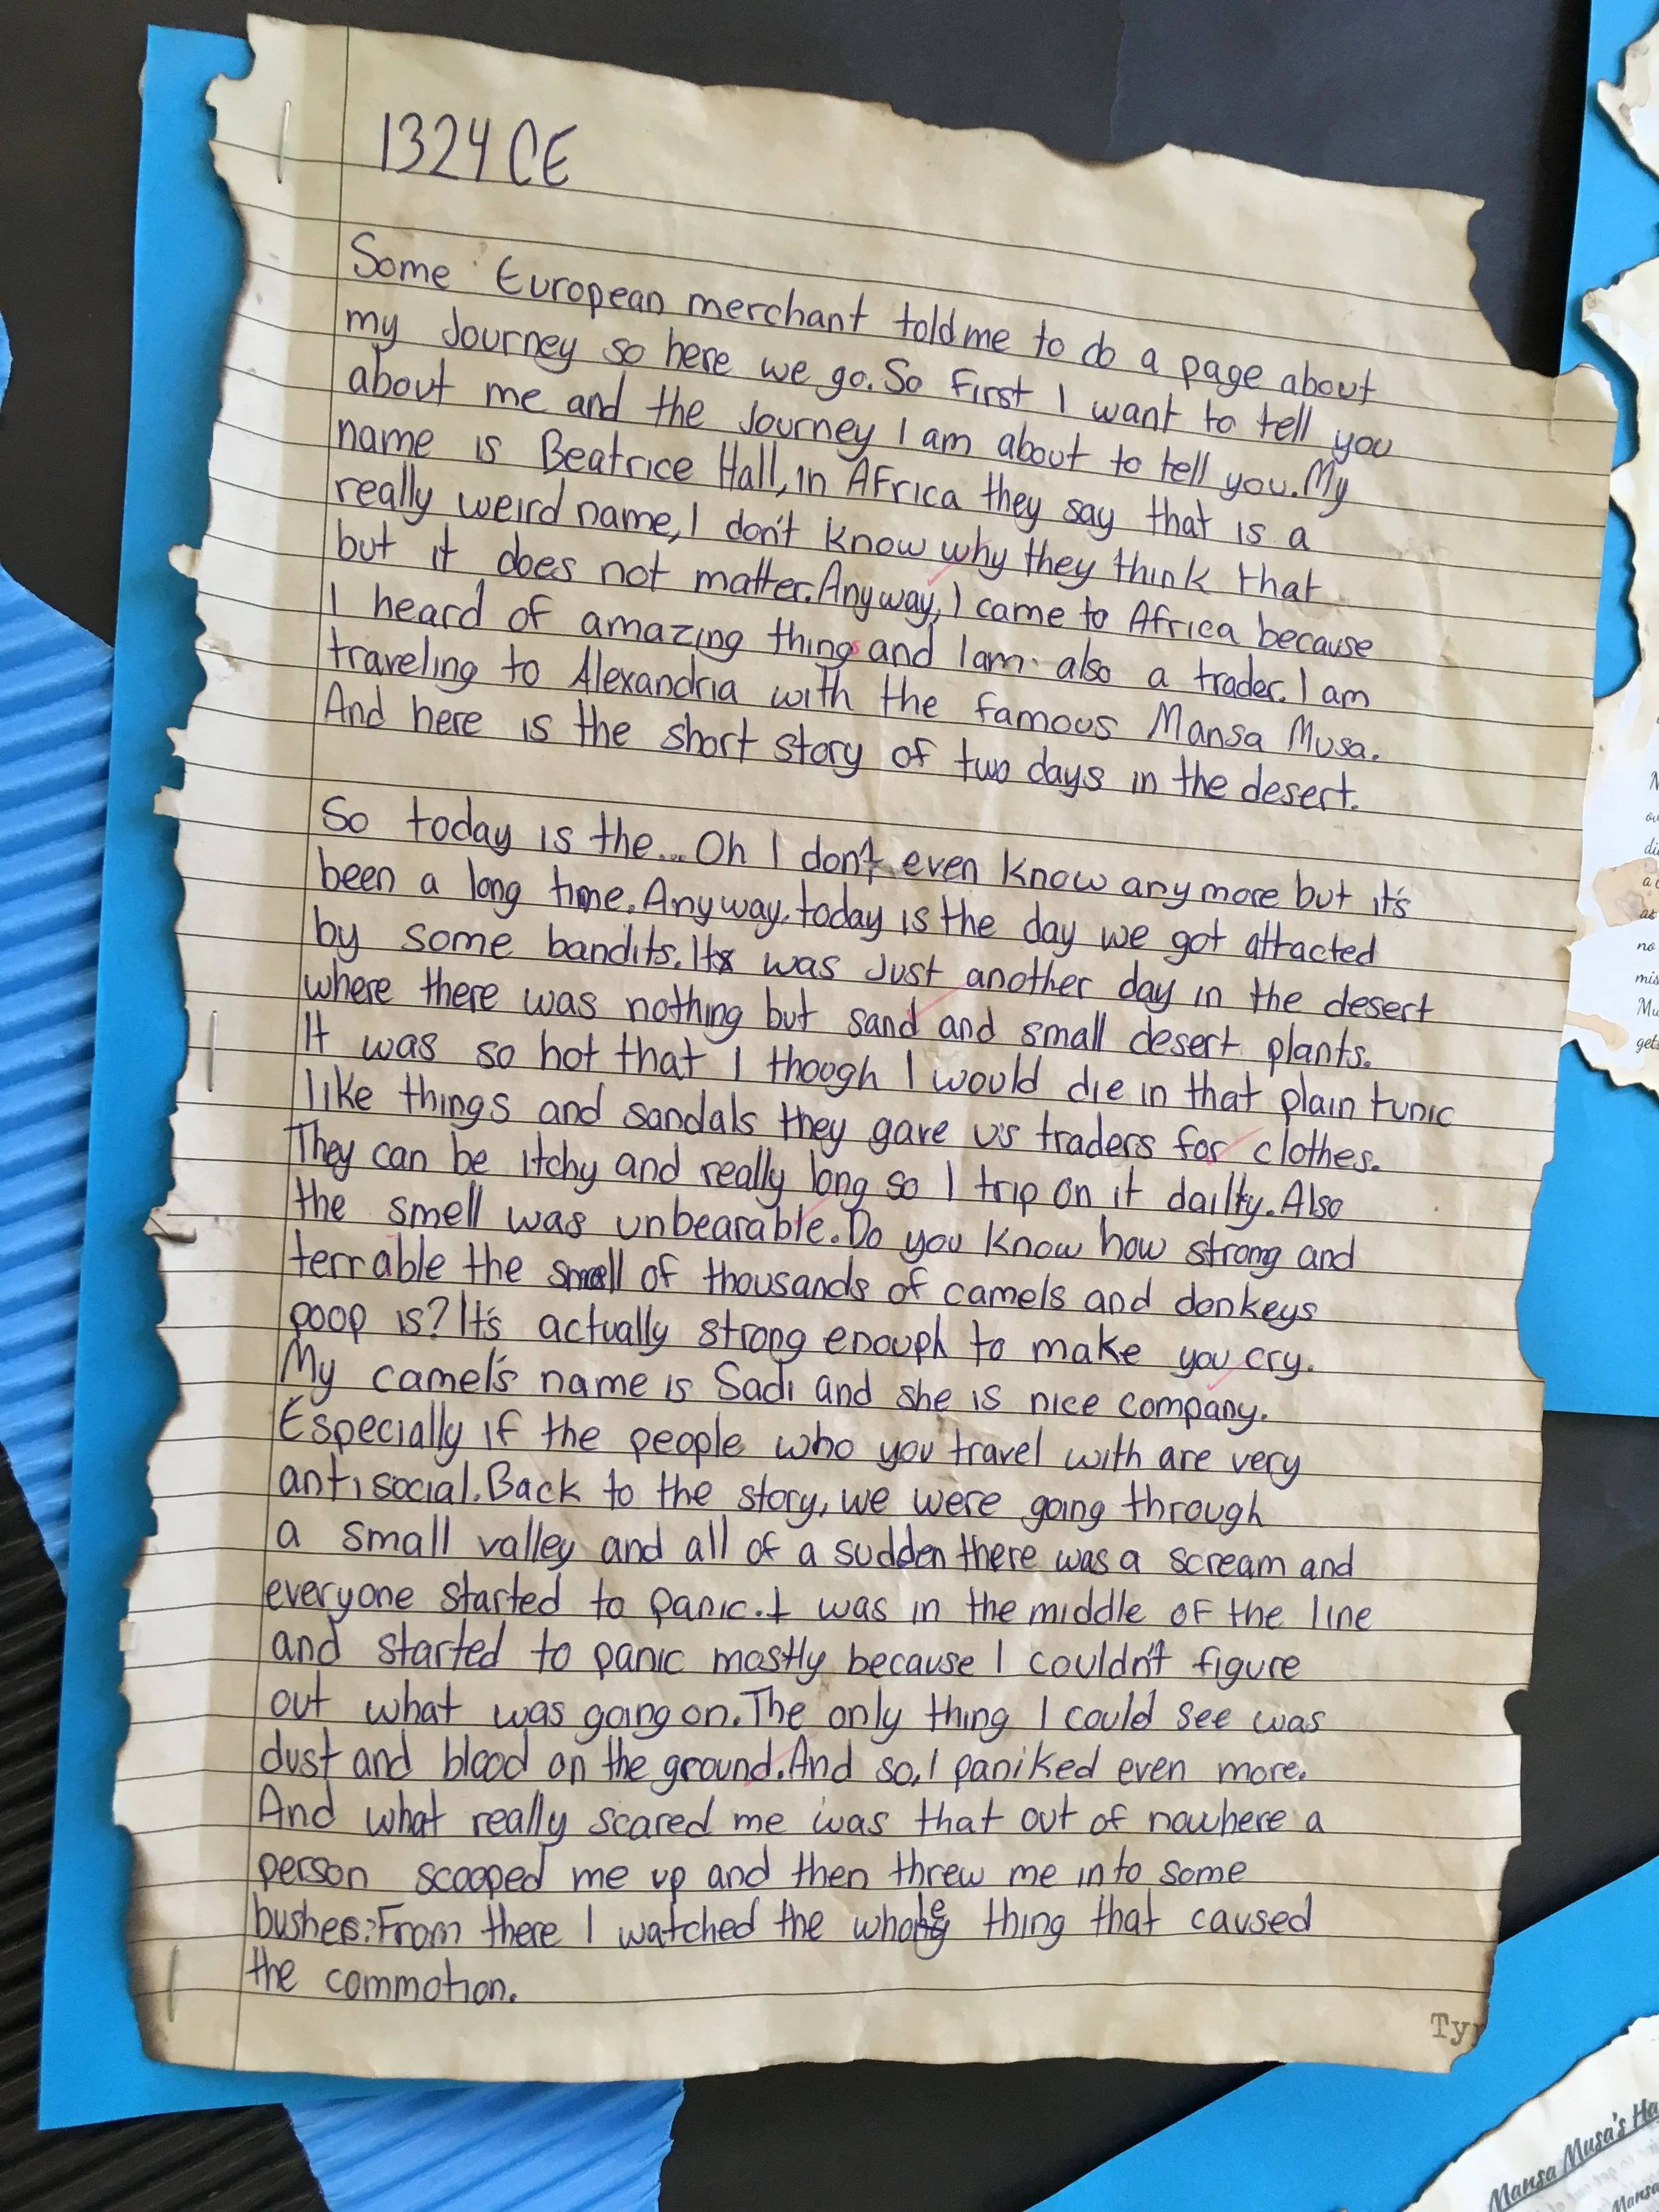 1324 CE
Some European merchant told me to do a page about
my Journey so here we go. So first I want to tell you
about me and the Journey I am about to tell you. My
name is Beatrice Hall, in Africa they say that is a
really weird name, I don't know why they think that
but it does not matter. Anyway, I came to Africa because
I heard of amazing things and I am also a trader. I am
traveling to Alexandria with the famous Mansa Musa.
And here is the short story of two days in the desert.
So today is the... Oh I don't even know anymore but it's
been a long time. Anyway, today is the day we got attacted
by some bandits. It was Just another day in the desert
where there was nothing but sand and small desert plants.
It was so hot that I though I would die in that plain tunic
like things and sandals they gave us traders for clothes.
They can be itchy and really long so I trip on it dailty. Also
the smell was unbearable. Do you know how strong and
terrable the smell of thousands of camels and donkeys
poop is? It's actually strong enouph to make you cry.
My camel's name is Sadi and she is nice company.
Especially if the people who you travel with are very
antisocial. Back to the story, we were going through
a small valley and all of a sudden there was a scream and
everyone started to panic. I was in the middle of the line
and started to panic mostly because I couldn't figure
out what was going on. The only thing I could see was
dust and blood on the ground. And so, I paniked even more.
And what really scared me was that out of nowhere a
person scooped me up and then threw me into some
bushes. From there I watched the whole thing that caused
the commotion.
Ty
no
mis
Mu
gets
Mansa Musa's Ha
Mansa